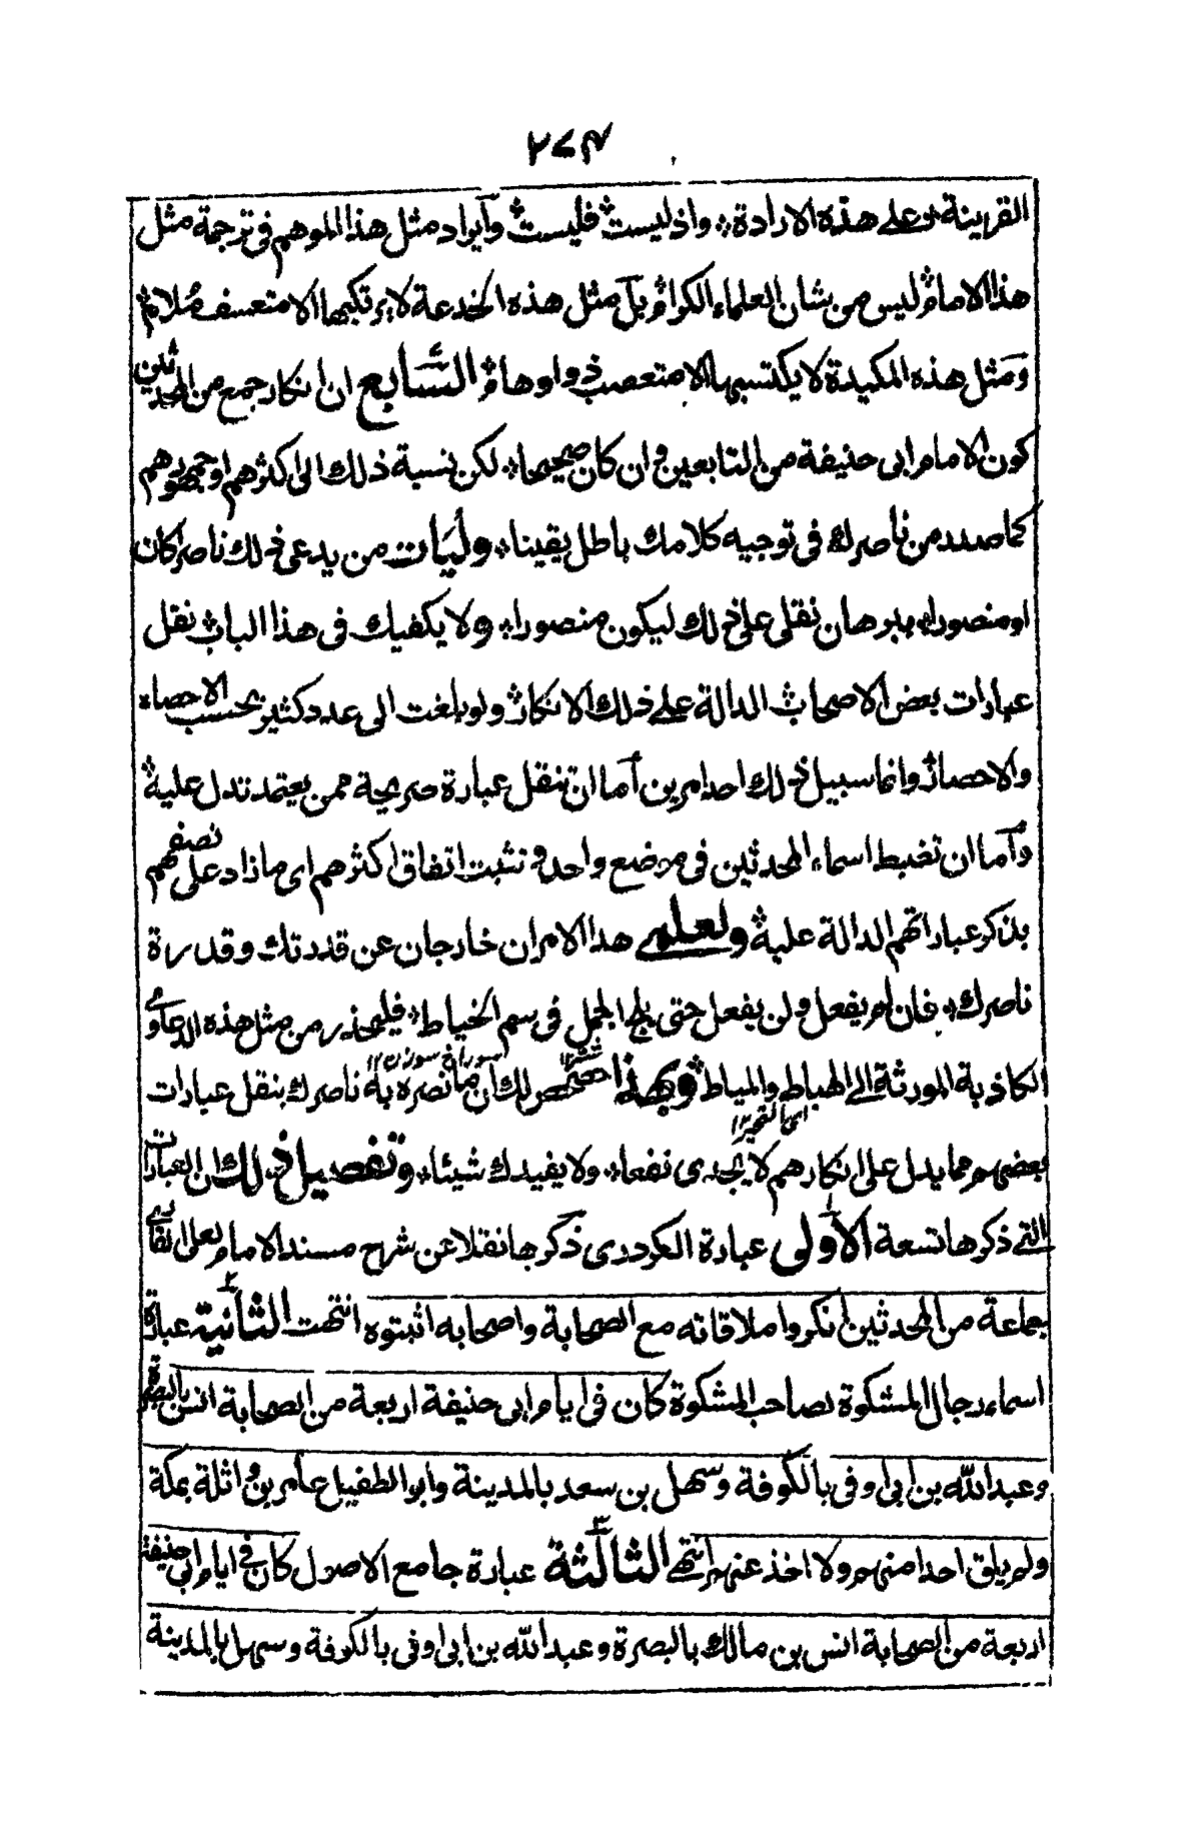 ٢٧٤
القرينة على هذه الارادة واذ ليست فليست وايراد مثل هذا الموهم فى ترجمة مثل
هذا الامام ليس من شان العلماء الكرام بل مثل هذه الخدعة لا يرتكبها الا متعسف ملام
ومثل هذه المكيدة لا يكتسبها الا متعصب ذو اوهام السابع ان انكار جمع من المحدثين
كون الامام ابى حنيفة من التابعين وان كان صحيحا لكن نسبة ذلك الى اكثرهم او جمهورهم
كما صدر من ناصرك فى توجيه كلامك باطل يقينا وليات من يدعى ذلك ناصرا كان
او منصورا ببرهان نقلى على ذلك ليكون منصورا ولا يكفيك فى هذا الباب نقل
عبارات بعض الاصحاب الدالة على ذلك الانكار ولو بلغت الى عدد كثير بحسب الاحصاء
والاحصار وانما سبيل ذلك احد امرين اما ان تنقل عبارة صريحة ممن يعتمد تدل عليه
واما ان تضبط اسماء المحدثين فى موضع واحد و تثبت اتفاق اكثرهم اى ما زاد على نصفهم
بذكر عباراتهم الدالة عليه ولعلمى هذا الامران خارجان عن قدرتك وقدرة
ناصرك فان لم يفعل ولن يفعل حتى يلج الجمل فى سم الخياط فليحذر من مثل هذه الدعاوى
الكاذبة المورثة الى الهباط والمياط وبهذا حصحص لك ان ما نصره به ناصرك بنقل عبارات
بعضهم مما يدل على انكارهم لا يجدى نفعا ولا يفيدك شيئا وتفصيل ذلك ان العبارات
التى ذكرها تسعة الاولى عبارة الكردرى ذكرها نقلا عن شرح مسند الامام لعلى القارى
جماعة من المحدثين انكروا ملاقاته مع الصحابة واصحابه اثبتوه انتهت الثانية عبارة
اسماء رجال المشكوة لصاحب المشكوة كان فى ايام ابى حنيفة اربعة من الصحابة انس بالبصرة
وعبد الله بن ابى اوفى بالكوفة وسهل بن سعد بالمدينة وابو الطفيل عامر بن واثلة بمكة
ولم يلق احدا منهم ولا اخذ عنهم انتهى الثالثة عبارة جامع الاصول كان فى ايام ابى حنيفة
اربعة من الصحابة انس بن مالك بالبصرة وعبد الله بن ابى اوفى بالكوفة وسهل بالمدينة